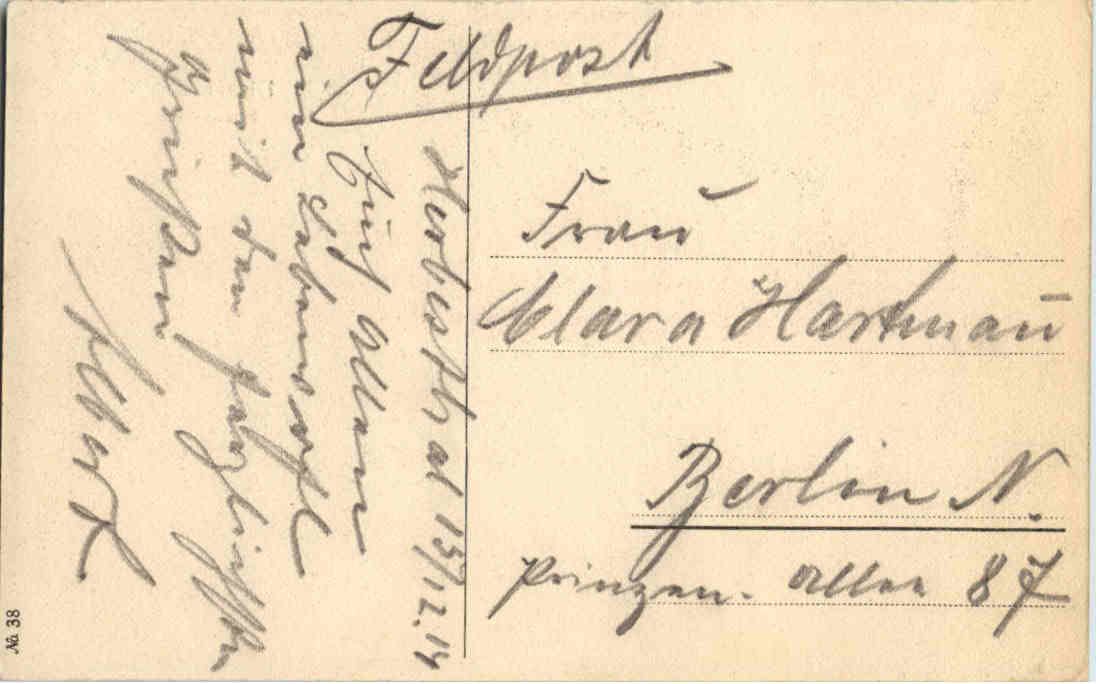 Feldpost
Herbesthal 15/12.14
Euch Allen
ein Lebewohl
mit den herzlichsten
Grüßen
Albert
Frau
Clara Hartman̄
Berlin N.
Prinzen-Allee 87
No. 38